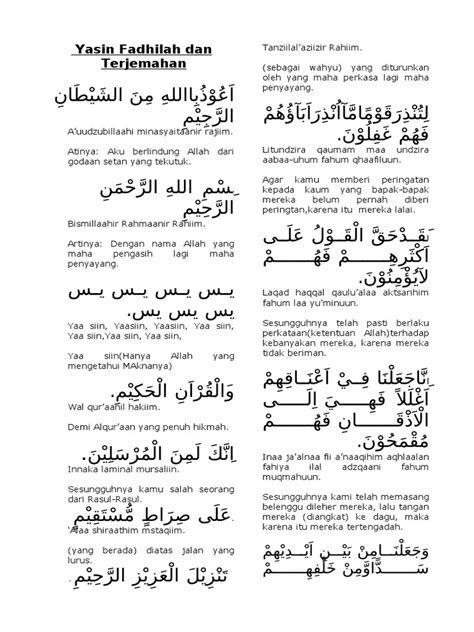 Yasin Fadhilah dan
Terjemahan
اَعُوْذُبِااللهِ مِنَ الشَّيْطَانِ
الرَّجِيْمِ
A'uudzubillaahi minasyaitaanir rajiim.
Atinya: Aku berlindung Allah dari
godaan setan yang tekutuk.
بِسْمِ اللهِ الرَّحْمَنِ
الرَّحِيْمِ
Bismillaahir Rahmaanir Rahiim.
Artinya: Dengan nama Allah yang
maha pengasih lagi maha
penyayang.
يــس يــس يــس
يس يس يس.
Yaa siin, Yaasiin, Yaasiin, Yaa siin,
Yaa siin,Yaa siin, Yaa siin,
Yaa siin(Hanya Allah yang
mengetahui MAknanya)
وَالْقُرْاَنِ الْحَكِيْمِ.
Wal qur'aanil hakiim.
Demi Alqur'aan yang penuh hikmah.
اِنَّكَ لَمِنَ الْمُرْسَلِيْنَ.
Innaka laminal mursaliin.
Sesungguhnya kamu salah seorang
dari Rasul-Rasul.
عَلَى صِرَاطٍ مُّسْتَقِيْمٍ.
'Alaa shiraathim mstaqiim.
(yang berada) diatas jalan yang
lurus.
تَنْزِيْلَ الْعَزِيْزِ الرَّحِيْمِ.
Tanziilal'aziizir Rahiim.
(sebagai wahyu) yang diturunkan
oleh yang maha perkasa lagi maha
penyayang.
لِتُنْذِرَقَوْمًامَّآاُنْذِرَاَبَآؤُهُمْ
فَهُمْ غَفِلُوْنَ.
Litundzira qaumam maa undzira
aabaa-uhum fahum qhaafiluun.
Agar kamu memberi peringatan
kepada kaum yang bapak-bapak
mereka belum pernah diberi
peringtan,karena itu mereka lalai.
لَقَــدْحَقَّ الْقَــوْلُ عَلَــى
اَكْثَرِهِــمْ فَهُــمْ
لاَيُؤْمِنُوْنَ.
Laqad haqqal qaulu'alaa aktsarihim
fahum laa yu'minuun.
Sesungguhnya telah pasti berlaku
perkataan(ketentuan Allah)terhadap
kebanyakan mereka, karena mereka
tidak beriman.
اِنَّاجَعَلْنَا فِــيْ اَعْنَــاقِهِمْ
اَغْلَلاً فَهِــيَ اِلَــى
الْاَذْقَــانِ فَهُــمْ
مُقْمَحُوْنَ.
Inaa ja'alnaa fii a'naaqihim aqhlaalan
fahiya ilal adzqaani fahum
muqmahuun.
Sesungguhnya kami telah memasang
belenggu dileher mereka, lalu tangan
mereka (diangkat) ke dagu, maka
karena itu mereka tertengadah.
وَجَعَلْنَــامِنْ بَيْــنِ اَيْــدِيْهِمْ
سَــدًّاوَّمِنْ خَلْفِهِــمْ